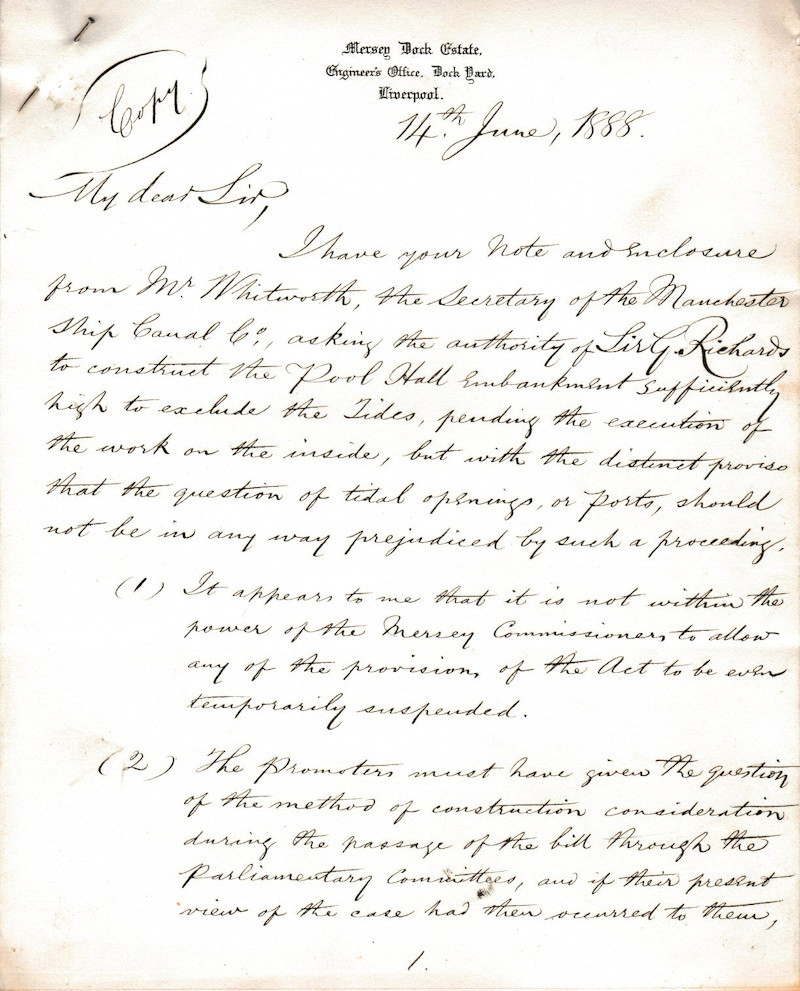 Mersey Dock Estate,
Engineer's Office, Dock Yard,
Liverpool.
Copy
14th June, 1888.
My dear Sir,
I have your Note and Enclosure
from Mr Whitworth, the Secretary of the Manchester
Ship Canal Co., asking the authority of Sir G. Richards
to construct the Pool Hall Embankment sufficiently
high to exclude the Tides, pending the execution of
the work on the inside, but with the distinct proviso
that the question of tidal openings, or Ports, should
not be in any way prejudiced by such a proceeding.
(1) It appears to me that it is not within the
power of the Mersey Commissioners to allow
any of the provisions of the Act to be even
temporarily suspended.
(2) The Promoters must have given the question
of the method of construction consideration
during the passage of the bill through the
Parliamentary Committees, and if their present
view of the case had then ocurred to them,
1.